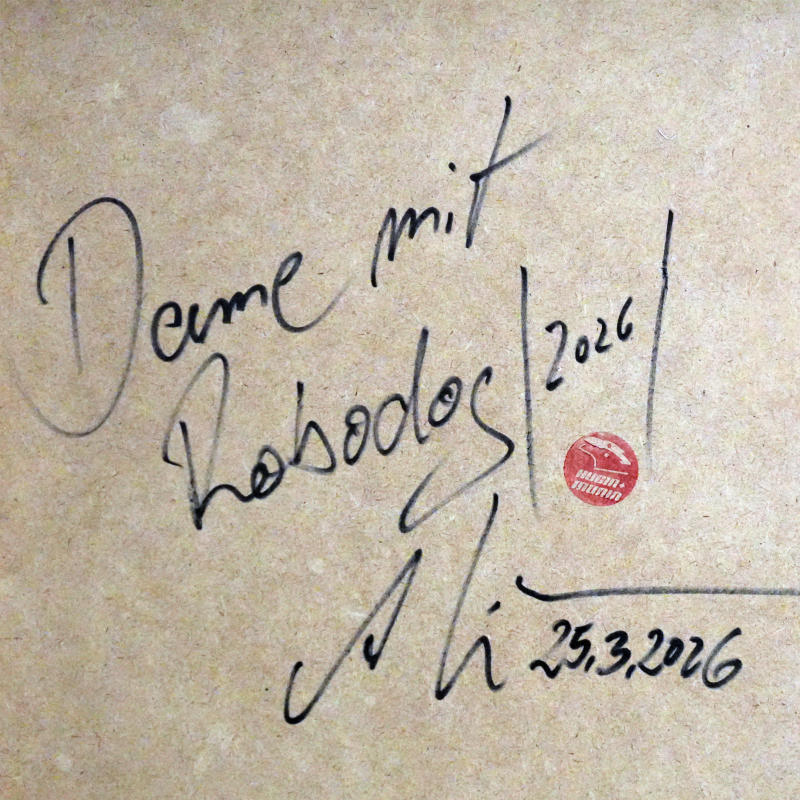 Dame mit
Robodog |2026|
Ali 25.3.2026
HUGIN+
MUNIN